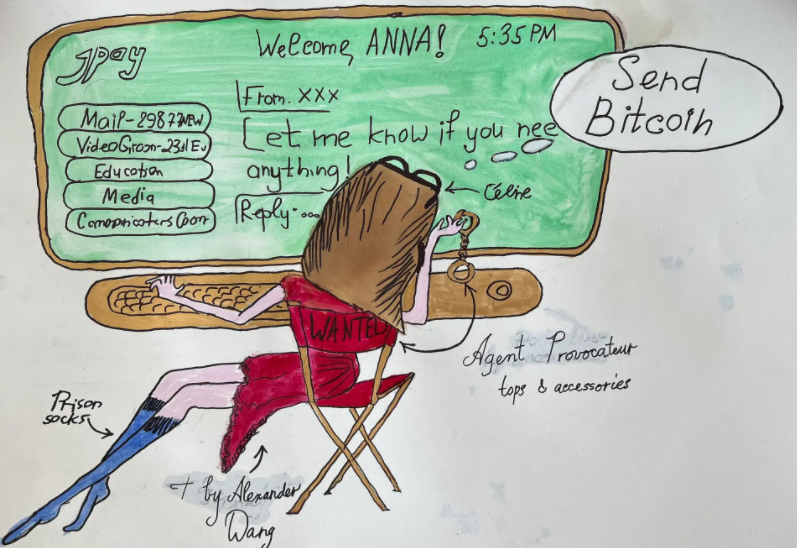 JPay
Welcome, ANNA!
5:35 PM
Send
Bitcoin
From. XXX
Mail-29877NEW
Let me know if you nee
Education
anything!
Media
Reply....
Céline
WANTED
Agent Provocateur
tops & accessories
Prison
socks
+ by Alexander
Wang